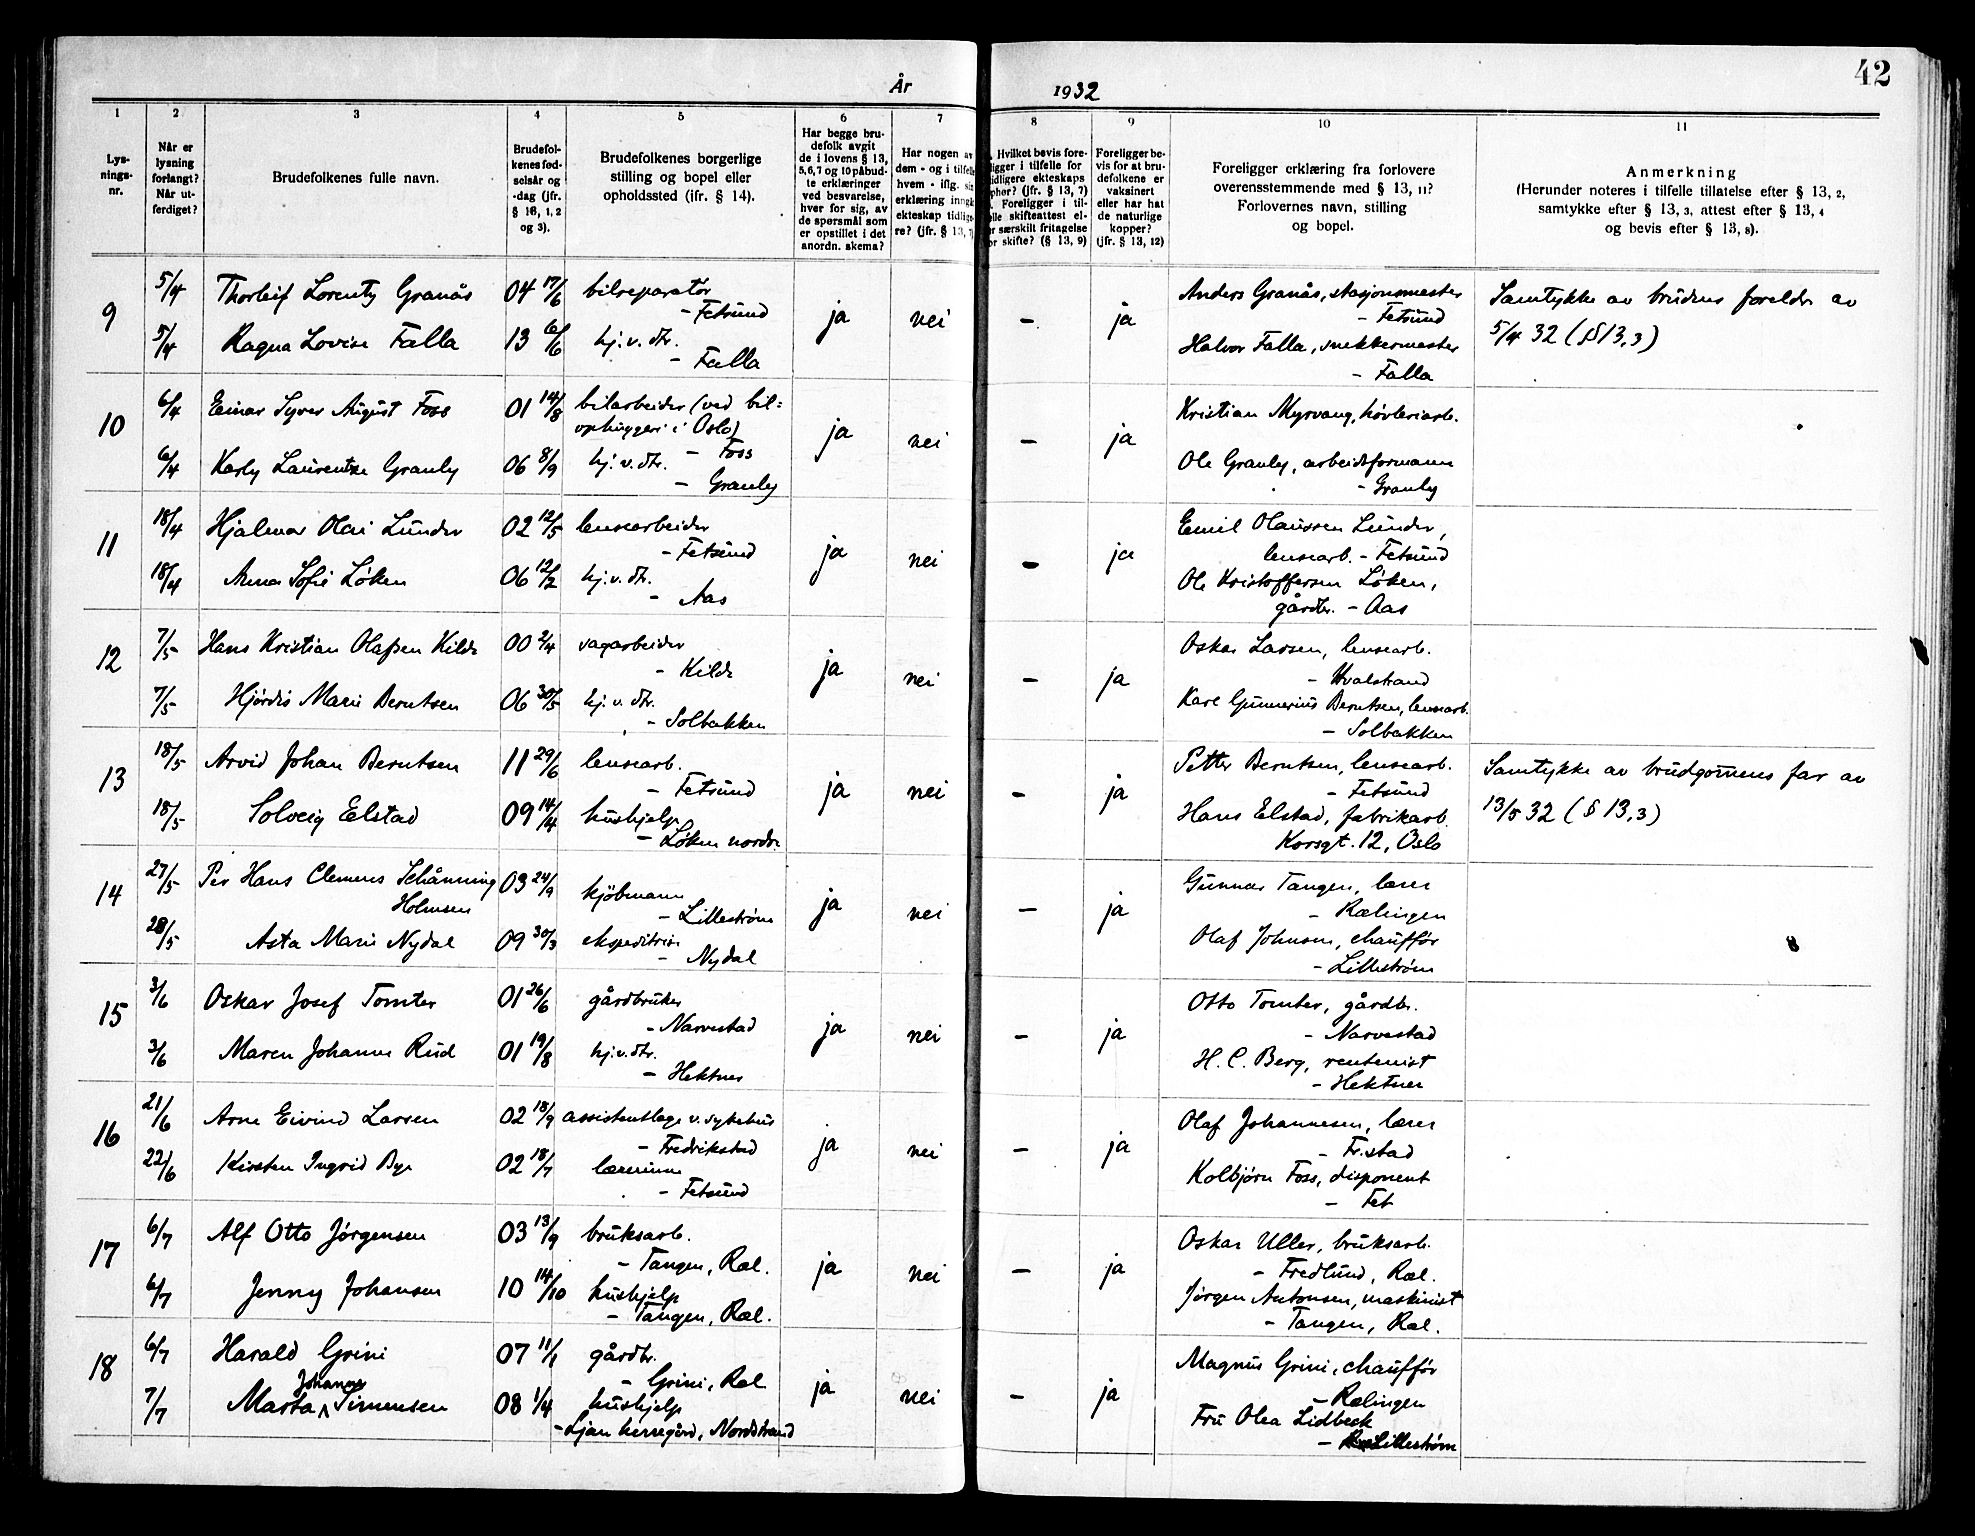 42
År 1932
1 2 3 4 5 6 7 8 9 10 11
Lysningsnr.
Når er lysning forlangt? Når utferdiget?
Brudefolkenes fulle navn.
Brudefolkenes fødselsår og -dag (jfr. § 16, 1, 2 og 3).
Brudefolkenes borgerlige stilling og bopel eller opholdssted (ifr. § 14).
Har begge brudefolk avgit de i lovens § 13, 5, 6, 7 og 10 påbudte erklæringer ved besvarelse, hver for sig, av de spørsmål som er opstillet i det anordn. skema?
Har nogen av dem - og i tilfelle hvem - iflg. sin erklæring inngå ekteskap tidligere? (jfr. § 13, 7)
Hvilket bevis foreligger i tilfelle for tidligere ekteskaps ophør? (jfr. § 13, 7) Foreligger i tilfelle skifteattest eller særskilt fritagelse for skifte? (§ 13, 9)
Foreligger bevis for at brudefolkene er vaksinert eller har hat de naturlige kopper? (jfr. § 13, 12)
Foreligger erklæring fra forlovere overensstemmende med § 13, 11? Forlovernes navn, stilling og bopel.
Anmerkning (Herunder noteres i tilfelle tillatelse efter § 13, 2, samtykke efter § 13, 3, attest efter § 13, 4 og bevis efter § 13, 8).
9 5/4 Thorleif Lorentz Granås 04 17/6 bilreparatør - Fetsund ja nei - ja Anders Granås, stasjonsmester - Fetsund Samtykke av brudens foreldr av
5/4 Ragna Lovise Falla 13 6/6 hj.v.dtr. - Falla Halvor Falla, snekkermester - Falla 5/4 32 (§ 13,3)
10 6/4 Einar Syver August Foss 01 14/8 bilarbeider (ved bilophuggeri i Oslo) - Foss ja nei - ja Kristian Myrvang, høvleriarb.
6/4 Karly Laurentze Granly 06 8/9 hj.v.dtr. - Granly Ole Granly, arbeidsformann - Granly
11 18/4 Hjalmar Olai Lunder 02 12/5 lensearbeider - Fetsund ja nei - ja Emil Olaussen Lunder, lensearb. - Fetsund
18/4 Anna Sofie Løken 06 12/2 hj.v.dtr. - Aas Ole Kristoffersen Løken, gårdbr. - Aas
12 7/5 Hans Kristian Olaßen Kilde 00 2/4 sagarbeider - Kilde ja nei - ja Oskar Larsen, lensearb. - Hvalstrand
7/5 Hjørdis Marie Berntsen 06 30/5 hj.v.dtr. - Solbakken Karl Gunnerius Berntsen, lensearb. - Solbakken
13 18/5 Arvid Johan Berntsen 11 29/6 lensearb. - Fetsund ja nei - ja Petter Berntsen, lensearb. - Fetsund Samtykke av brudgomens far av
18/5 Solveig Elstad 09 14/4 hushjelp - Løken nordre Hans Elstad, fabrikarb. Korsgt. 12, Oslo 13/5 32 (§ 13,3)
14 27/5 Per Hans Clemens Schånning Holmsen 03 24/9 kjøbmann - Lillestrøm ja nei - ja Gunnar Tangen, lærer - Rælingen
28/5 Asta Marie Nydal 09 30/3 ekspeditrise - Nydal Olaf Johnsen, chauffør - Lillestrøm
15 3/6 Oskar Josef Tomter 01 26/6 gårdbruker - Narvestad ja nei - ja Otto Tomter, gårdbr. - Narvestad
3/6 Maren Johanne Rud 01 19/8 hj.v.dtr. - Hektner H. C. Berg, rentenist - Hektner
16 21/6 Arne Eivind Larsen 02 18/9 assistentlæge v. sykehus - Fredrikstad ja nei - ja Olaf Johannesen, lærer - Fr.stad
22/6 Kirsten Ingrid Bye 02 18/7 lærerinne - Fetsund Kolbjørn Foss, disponent - Fet
17 6/7 Alf Otto Jørgensen 03 13/9 bruksarb. - Tangen, Ræl. ja nei - ja Oskar Uller, bruksarb. - Fredlund, Ræl.
6/7 Jenny Johansen 10 14/10 hushjelp - Tangen, Ræl. Jørgen Antonsen, maskinist - Tangen, Ræl.
18 6/7 Harald Grini 07 11/1 gårdbr. - Grini, Ræl ja nei - ja Magnus Grini, chauffør - Rælingen
7/7 Marta Johanne Simensen 08 1/4 hushjelp - Ljan herregård, Nordstrand Fru Olea Lidbeck - Lillestrøm